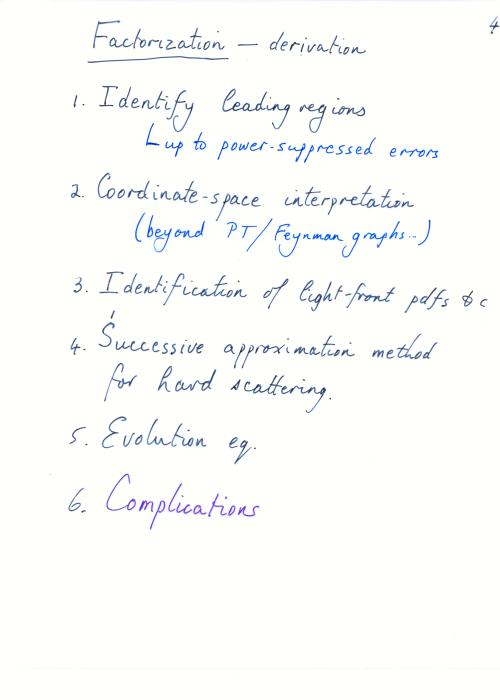 4
Factorization — derivation
1. Identify leading regions
up to power-suppressed errors
2. Coordinate-space interpretation
(beyond PT/Feynman graphs..)
3. Identification of light-front pdfs &c
4. Successive approximation method
for hard scattering.
5. Evolution eq.
6. Complications